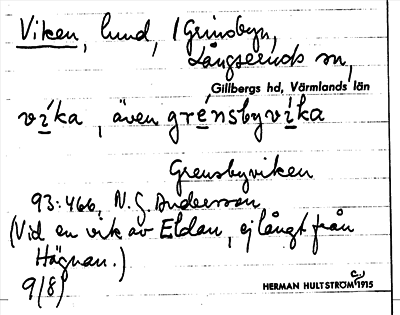 Viken, lund, i Grinsbyn,
Långseruds sn,
Gillbergs hd, Värmlands län
víka, även grénsbyvíka
Grensbyviken
93:466. N. G. Andersson
(Vid en vik av Eldan, ej långt från
Högnan.)
9/8
HERMAN HULTSTRÖM 1915